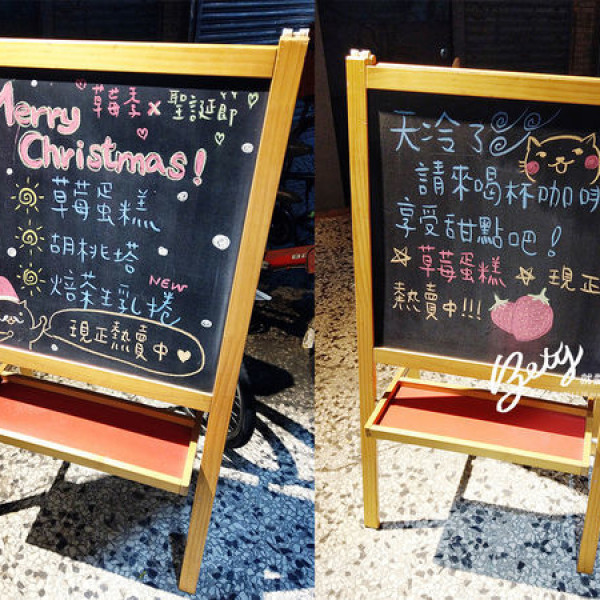 Merry
草莓季 x 聖誕節
Christmas!
草莓蛋糕
胡桃塔
焙茶生乳捲 NEW
現正熱賣中
天冷了
請來喝杯咖啡
享受甜點吧!
草莓蛋糕 現正
熱賣中!!!
Bety